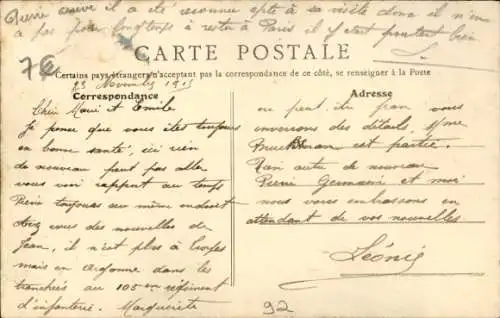 Pierre
il a été reconnu apte à sa visite donc il n'en
a pas pour longtemps à rester à Paris il s'est pourtant bien
7€
CARTE POSTALE
Certains pays étrangers n'acceptant pas la correspondance de ce côté, se renseigner à la Poste
Novembre 1915
Correspondance
Adresse
Chers Marie et Emile
Je pense que vous êtes toujours
en bonne santé, ici rien
de nouveau peut pas aller
vous voir rapport au temps
Pierre toujours au même endroit
vous des nouvelles de
Jean, il n'est plus à
mais en Argonne dans les
tranchées au 105ème régiment
d'infanterie. Marguerite
ne peut vous
enverrons des détails, Mme
est partie.
Rien autre de nouveau
Pierre Germaine et moi
nous vous embrassons en
attendant de vos nouvelles
Léonie
92